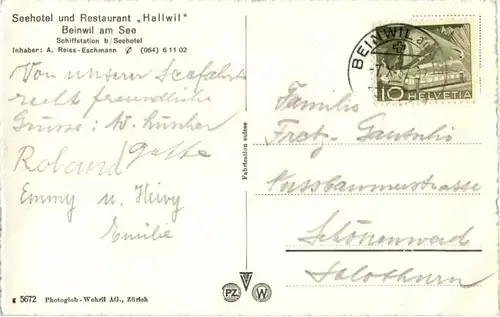 Seehotel und Restaurant „Hallwil"
Beinwil am See
Schiffstation b/Seehotel
Inhaber: A. Reiss-Eschmann ✆ (064) 6 11 02
Von unserer Seefahrt
recht freundliche
Grüsse:
Roland
Emmy u.
Emilie
g 5672 Photoglob-Wehrli AG., Zürich
Fabrication suisse
PZ W
BEINWIL
10 HELVETIA
Familie
Fretz-Gautschi
Nussbaumerstrasse
Schönenwerd
Solothurn